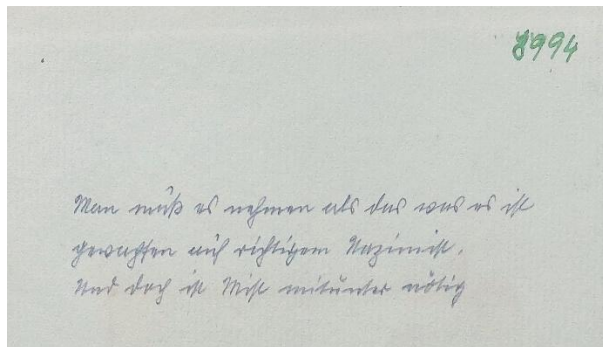 8994
Man muß es nehmen als das was es ist
gewachsen auf richtigem Nazimist.
Und doch ist Mist mitunter nötig